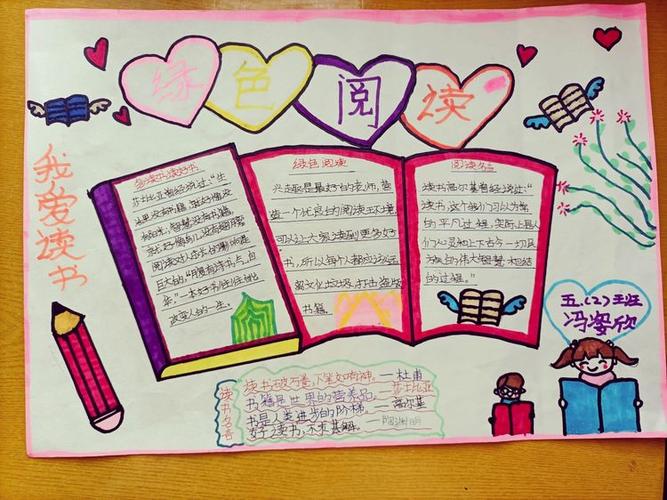 绿色阅读
我爱读书
读书读好书
莎士比亚曾经说过:“生
活里没有书籍,就好像没有
阳光;智慧没有书籍,
就好像鸟儿没有翅膀
阅读对人成长的影响是
巨大的,“腹有诗书气自
华,”一本好书往往能
改变人的一生。
绿色阅读
兴趣是最好的老师,营
造一个比良性的阅读环境
可以让大家读到更多好
书,所以每个人都应该远
离文化垃圾,打击盗版
书籍。
阅读
读书高尔基曾经说过:“
读书,这个我们习以为常
的平凡过程,实际上是人
们心灵和上下古今一切民
族的伟大智慧相结
的过程。”
五.(2)班
冯馨欣
读书名言
读书破万卷,下笔如有神。—杜甫
书籍是世界的营养品。莎士比亚
书是人类进步的阶梯。—高尔基
好读书,不求甚解。—陶渊明